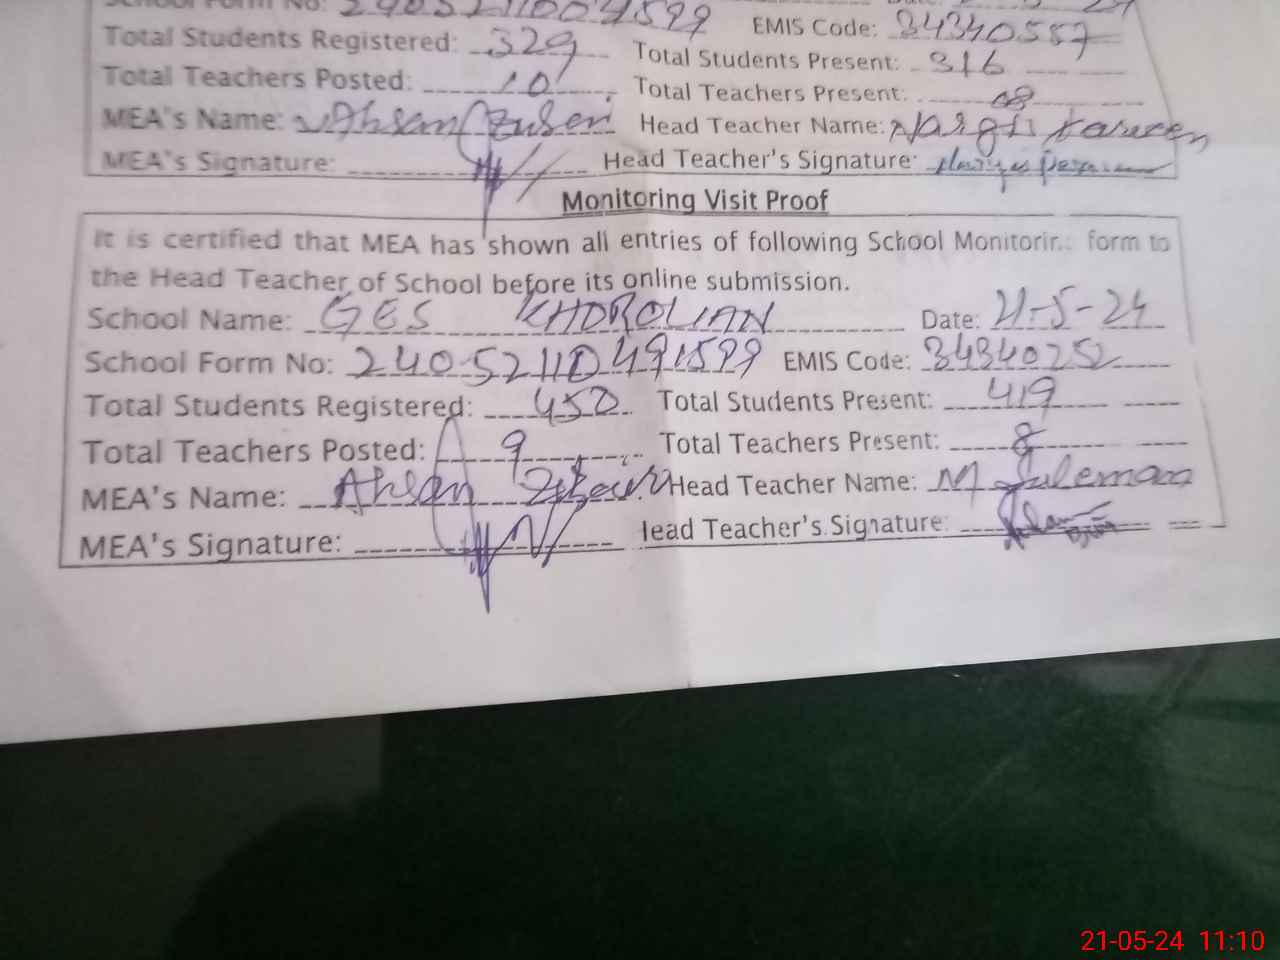 School Form No: 2405211004599 EMIS Code: 34340557
Total Students Registered: 329 Total Students Present: 316
Total Teachers Posted: 10 Total Teachers Present: 08
MEA's Name: Ahsan Head Teacher Name: Nargis
MEA's Signature: Head Teacher's Signature:
Monitoring Visit Proof
It is certified that MEA has shown all entries of following School Monitorin.. form to
the Head Teacher of School before its online submission.
School Name: GES KHOROLIAN Date: 21-5-24
School Form No: EMIS Code: 34340252
Total Students Registered: 450 Total Students Present: 419
Total Teachers Posted: 9 Total Teachers Present: 8
MEA's Name: Ahsan Head Teacher Name: M Suleman
MEA's Signature: Head Teacher's Signature:
21-05-24 11:10